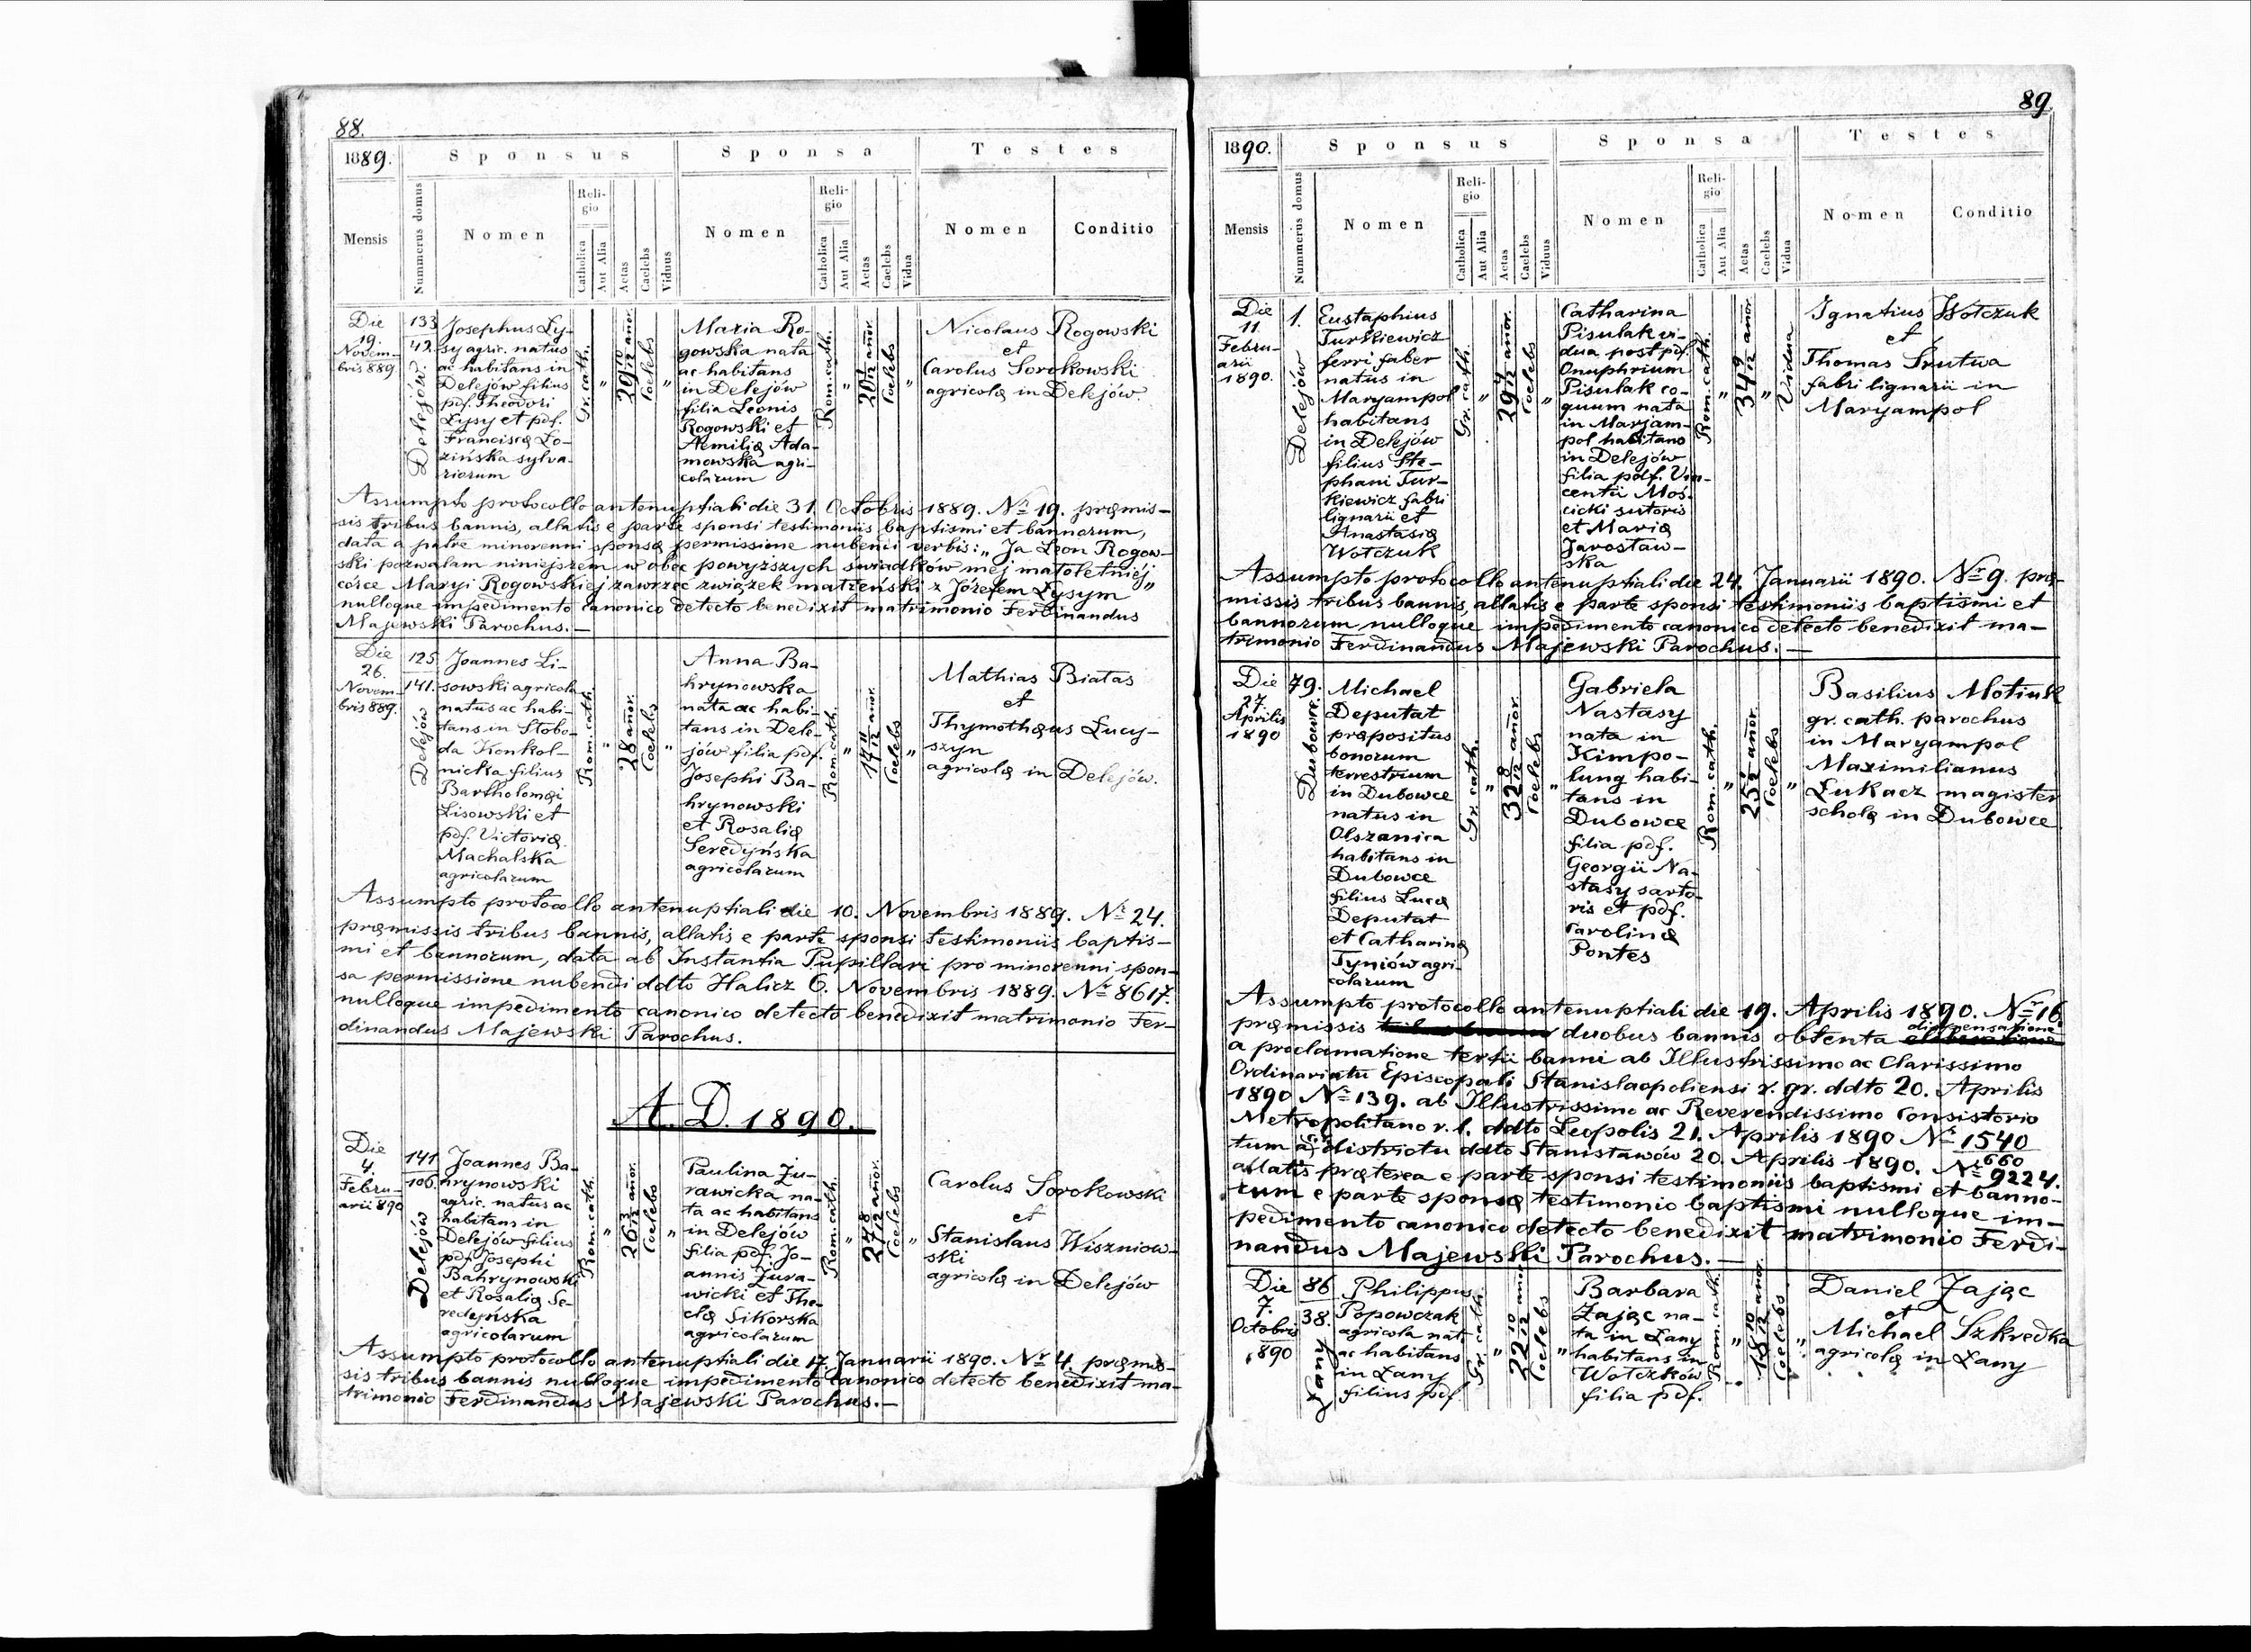 88.
1889.
Sponsus
Sponsa
Testes
Mensis
Nummerus domus
Nomen
Religio
Catholica
Aut Alia
Aetas
Caelebs
Viduus
Nomen
Religio
Catholica
Aut Alia
Aetas
Caelebs
Vidua
Nomen
Conditio
Die
19.
Novem-
bris 889.
133
42.
Delejów
Josephus Ły-
sy agric. natus
ac habitans in
Delejów filius
pdf. Theodori
Łysy et pdf.
Franciscæ Ło-
zińska sylva-
riorum
Gr. cath.
"
29 10/12 añor.
Coelebs
"
Maria Ro-
gowska nata
ac habitans
in Delejów
filia Leonis
Rogowski et
Aemiliæ Ada-
mowska agri-
colarum
Rom. cath.
"
20 1/12 añor.
Coelebs
"
Nicolaus Rogowski
et
Carolus Sorokowski
agricolæ in Delejów.
Assumpto protocollo antenuptiali die 31. Octobris 1889. Nr 19. præmis-
sis tribus bannis, allatis e parte sponsi testimoniis baptismi et bannorum,
data a patre minorenni sponsæ permissione nubendi verbis: „Ja Leon Rogow-
ski pozwalam niniejszem w obec powyższych świadków mej małoletniéj
córce Maryi Rogowskiej zawrzeć związek małżeński z Józefem Łysym"
nulloque impedimento canonico detecto benedixit matrimonio Ferdinandus
Majewski Parochus.—
Die
26.
Novem-
bris 889.
125.
141.
Delejów
Joannes Li-
sowski agricola
natus ac habi-
tans in Słobo-
da Konkol-
nicka filius
Bartholomæi
Lisowski et
pdf. Victoriæ
Machalska
agricolarum
Rom. cath.
"
28 añor.
Coelebs
"
Anna Ba-
hrynowska
nata ac habi-
tans in Dele-
jów filia pdf.
Josephi Ba-
hrynowski
et Rosaliæ
Seredyńska
agricolarum
Rom. cath.
"
14 11/12 añor.
Coelebs
"
Mathias Białas
et
Thymothæus Łucy-
szyn
agricolæ in Delejów.
Assumpto protocollo antenuptiali die 10. Novembris 1889. Nr 24.
præmissis tribus bannis, allatis e parte sponsi testimoniis baptis-
mi et bannorum, data ab Instantia Pupillari pro minorenni spon-
sa permissione nubendi ddto Halicz 6. Novembris 1889. Nr 8617.
nulloque impedimento canonico detecto benedixit matrimonio Fer-
dinandus Majewski Parochus.
A. D. 1890.
Die
4.
Febru-
arii 890
141.
106.
Delejów
Joannes Ba-
hrynowski
agric. natus ac
habitans in
Delejów filius
pdf. Josephi
Bahrynowski
et Rosaliæ Se-
redyńska
agricolarum
Rom. cath.
"
26 3/12 añor.
Coelebs
"
Paulina Żu-
rawicka na-
ta ac habitans
in Delejów
filia pdf. Jo-
annis Żura-
wicki et The-
clæ Sikorska
agricolarum
Rom. cath.
"
27 8/12 añor.
Coelebs
"
Carolus Sorokowski
et
Stanislaus Wiszniow-
ski
agricolæ in Delejów
Assumpto protocollo antenuptiali die 17. Januarii 1890. Nr 4. præmis-
sis tribus bannis nulloque impedimento canonico detecto benedixit ma-
trimonio Ferdinandus Majewski Parochus.—
89.
1890.
Sponsus
Sponsa
Testes
Mensis
Nummerus domus
Nomen
Religio
Catholica
Aut Alia
Aetas
Caelebs
Viduus
Nomen
Religio
Catholica
Aut Alia
Aetas
Caelebs
Vidua
Nomen
Conditio
Die
11.
Febru-
arii
1890.
1.
Delejów
Eustaphius
Turkiewicz
ferri faber
natus in
Maryampol
habitans
in Delejów
filius Ste-
phani Tur-
kiewicz fabri
lignarii et
Anastasiæ
Wołczuk
Gr. cath.
"
29 4/12 añor.
Coelebs
"
Catharina
Pisulak vi-
dua post pdf.
Onuphrium
Pisulak co-
quum nata
in Maryam-
pol habitans
in Delejów
filia pdf. Vin-
centii Moś-
cicki sutoris
et Mariæ
Jarosław-
ska
Rom. cath.
"
34 9/12 añor.
"
Vidua
Ignatius Wołczuk
et
Thomas Srutwa
fabri lignarii in
Maryampol
Assumpto protocollo antenuptiali die 24. Januarii 1890. Nr 9. præ-
missis tribus bannis, allatis e parte sponsi testimoniis baptismi et
bannorum nulloque impedimento canonico detecto benedixit ma-
trimonio Ferdinandus Majewski Parochus.—
Die
27.
Aprilis
1890
79.
Dubowce
Michael
Deputat
præpositus
bonorum
terrestrium
in Dubowce
natus in
Olszanica
habitans in
Dubowce
filius Lucæ
Deputat
et Catharinæ
Tyniów agri-
colarum
Gr. cath.
"
32 8/12 añor.
Coelebs
"
Gabriela
Nastasy
nata in
Kimpo-
lung habi-
tans in
Dubowce
filia pdf.
Georgii Na-
stasy sarto-
ris et pdf.
Carolinæ
Pontes
Rom. cath.
"
25 1/2 añor.
Coelebs
"
Basilius Motiuk
gr. cath. parochus
in Maryampol
Maximilianus
Łukacz magister
scholæ in Dubowce
Assumpto protocollo antenuptiali die 19. Aprilis 1890. Nr 16
præmissis duobus bannis obtenta dispensatione
a proclamatione tertii banni ab Illustrissimo ac Clarissimo
Ordinariatu Episcopali Stanislaopoliensi r. gr. ddto 20. Aprilis
1890 Nr 139. ab Illustrissimo ac Reverendissimo Consistorio
Metropolitano r. l. ddto Leopolis 21. Aprilis 1890 Nr 1540
tum a districtu ddto Stanisławów 20. Aprilis 1890. Nr 660 9224.
allatis præterea e parte sponsi testimoniis baptismi et banno-
rum e parte sponsæ testimonio baptismi nulloque im-
pedimento canonico detecto benedixit matrimonio Ferdi-
nandus Majewski Parochus.—
Die
7.
Octobris
1890
86
38.
Łany
Philippus
Popowczak
agricola nat.
ac habitans
in Łany
filius pdf.
Gr. cath.
"
22 10/12 añor.
Coelebs
"
Barbara
Zając na-
ta in Łany
habitans in
Wołczków
filia pdf.
Rom. cath.
"
18 10/12 añor.
Coelebs
"
Daniel Zając
et
Michael Szkredka
agricolæ in Łany